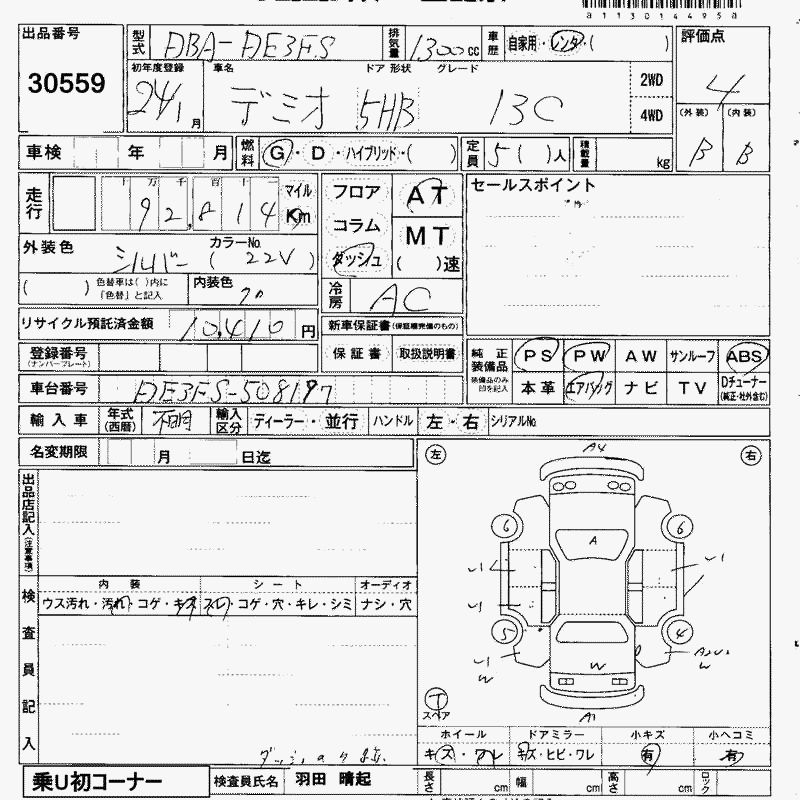 a113014495a
出品番号 型式 DBA-DE3FS 排気量 1300cc 車歴 自家用・レンタ・( ) 評価点
30559 初年度登録 車名 ドア 形状 グレード 2WD 4
24/1月 デミオ 5HB 13C 4WD (外装) (内装)
車検 年 月 燃料 G・D・ハイブリッド・( ) 定員 5( )人 積載量 kg B B
走行 十万千百十一 マイル フロア AT セールスポイント
92,814 Km コラム MT
外装色 シルバー カラーNo. ( 22V ) ダッシュ ( )速
( ) 色替車は( )内に「色替」と記入 内装色 冷房 AC
リサイクル預託済金額 10,410円 新車保証書(保証継完備のもの)
登録番号 (ナンバープレート) 保証書 取扱説明書 純正装備品 PS PW AW サンルーフ ABS
車台番号 DE3FS-508197 装備品のみ凹を記入 本革 エアバッグ ナビ TV Dチューナー (純正・社外含む)
輸入車 年式(西暦) 不明 輸入区分 ディーラー・並行 ハンドル 左・右 シリアルNo.
名変期限 月 日迄 左 右
出品店記入(注意事項)
A4
6 6
A
U1 U1
U1
5 4
U1 W W W
A1
T
スペア
検査員記入 内装 シート オーディオ
ウス汚れ・汚れ・コゲ・キズ スレ・コゲ・穴・キレ・シミ ナシ・穴
ホイール ドアミラー 小キズ 小ヘコミ
キズ・ワレ キズ・ヒビ・ワレ 有 有
乗U初コーナー 検査員氏名 羽田 晴起 長さ cm 幅 cm 高さ cm ロック